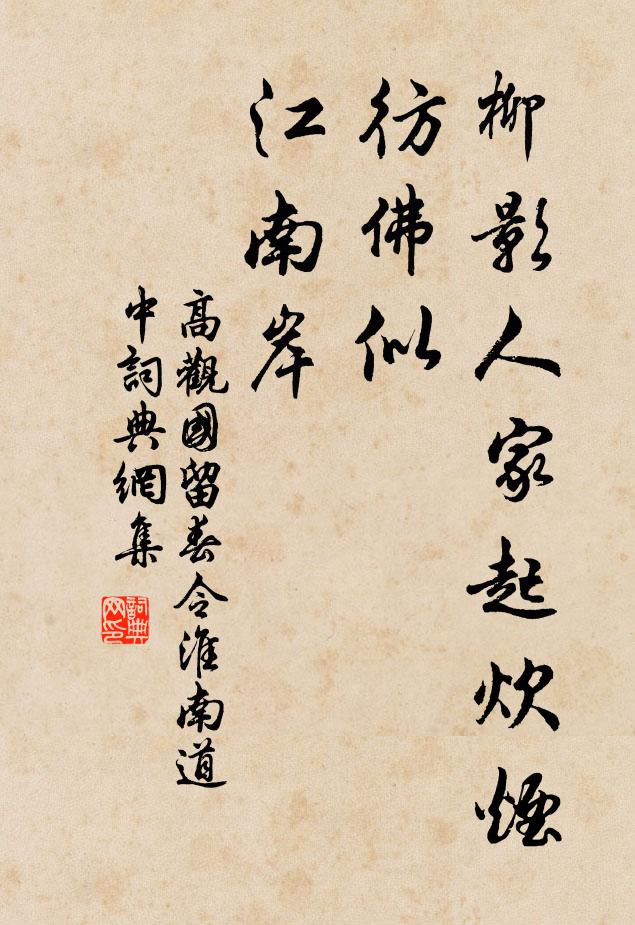 柳影人家起炊煙
彷佛似
江南岸
高觀國留春令淮南道
中詞典網集
詞典网印